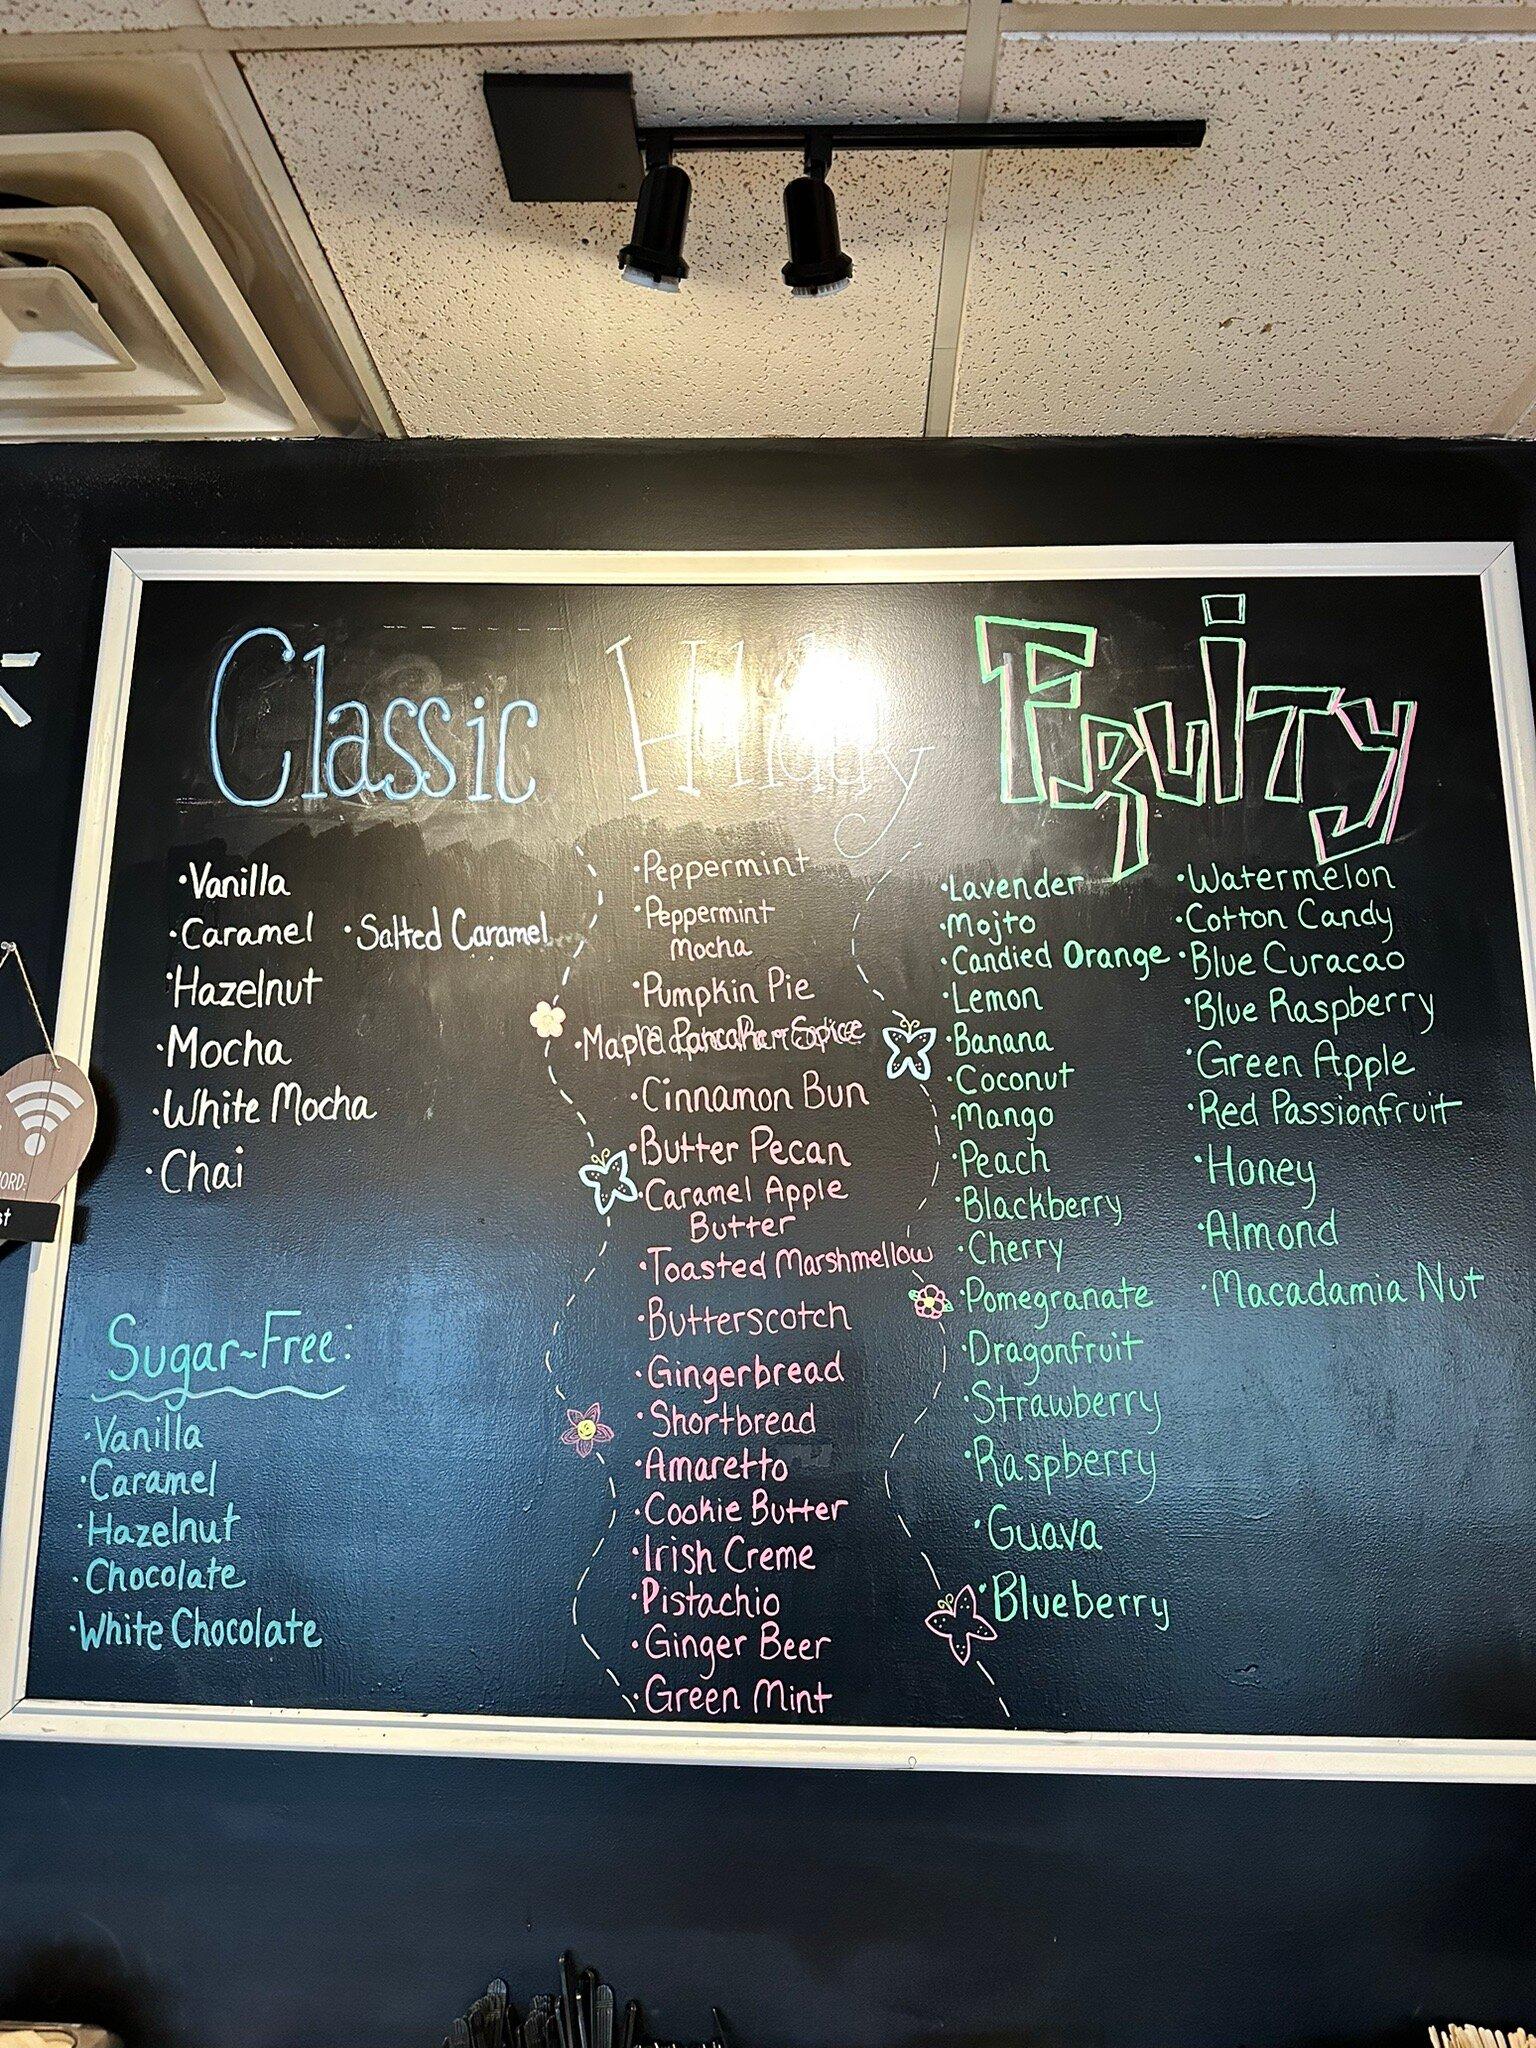 Classic
Vanilla
Caramel
Salted Caramel
Hazelnut
Mocha
White Mocha
Chai
Sugar-Free:
Vanilla
Caramel
Hazelnut
Chocolate
White Chocolate
Peppermint
Peppermint
Mocha
Pumpkin Pie
Maple
Cinnamon Bun
Butter Pecan
Caramel Apple
Butter
Toasted Marshmellow
Butterscotch
Gingerbread
Shortbread
Amaretto
Cookie Butter
Irish Creme
Pistachio
Ginger Beer
Green Mint
Fruity
Lavender
Mojto
Candied Orange
Lemon
Banana
Coconut
Mango
Peach
Blackberry
Cherry
Pomegranate
Dragonfruit
Strawberry
Raspberry
Guava
Blueberry
Watermelon
Cotton Candy
Blue Curacao
Blue Raspberry
Green Apple
Red Passionfruit
Honey
Almond
Macadamia Nut